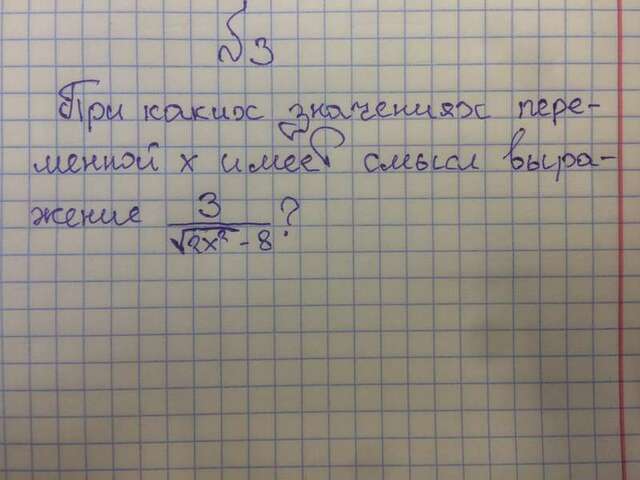 №3
При каких значениях пере-
менной х имеет смысл выра-
жение 3/(√(2x²) - 8)?